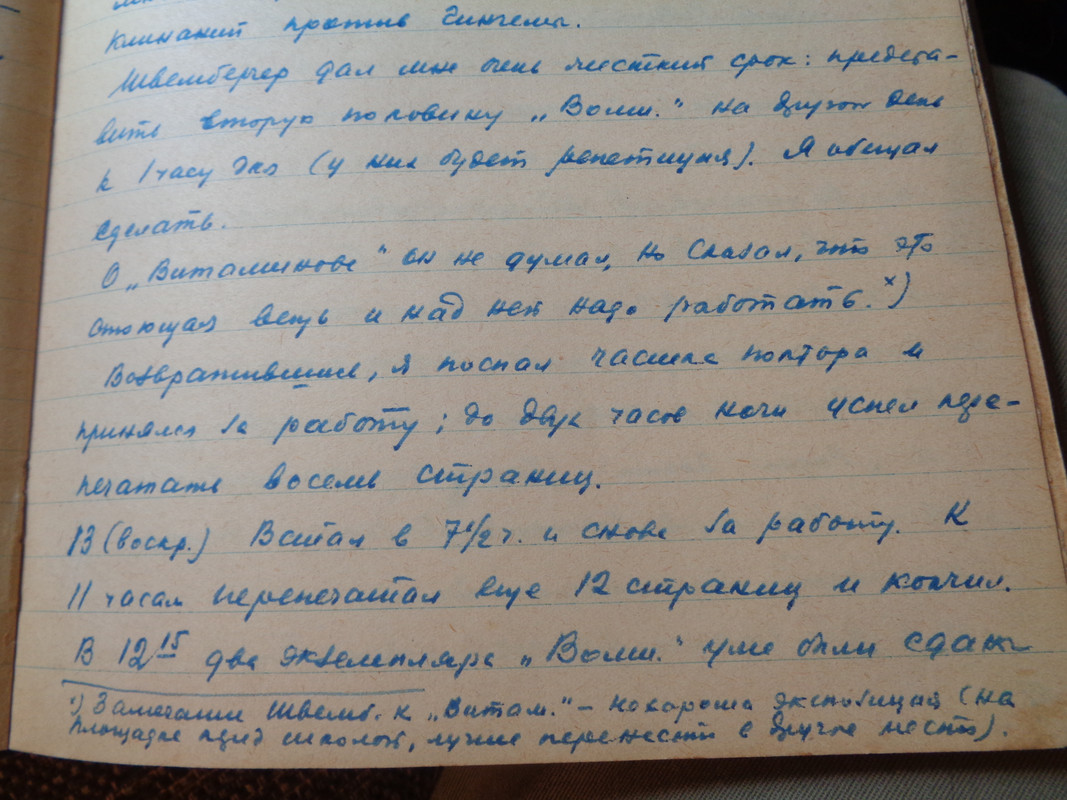 клинаний против Гингемы.
Швембергер дал мне очень жесткий срок: предста-
вить вторую половину „Волш." на другой день
к 1 часу дня (у них будет репетиция). Я обещал
сделать.
О „Витаминове" он не думал, но сказал, что это
стоющая вещь и над ней надо работать.ˣ)
Возвратившись, я поспал часика полтора и
принялся за работу; до двух часов ночи успел пере-
печатать восемь страниц.
13 (воскр.) Встал в 7 1/2 ч. и снова за работу. К
11 часам перепечатал еще 12 страниц и кончил.
В 12 15 два экземпляра „Волш." уже были сданы
ˣ) Замечания Швемб. к „Витам." – нехороша экспозиция (на
площадке перед школой, лучше перенести в другое место).